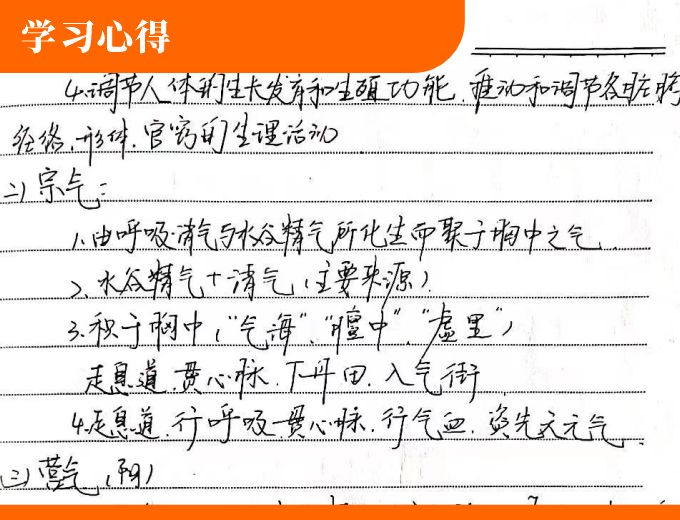 学习心得
4.调节人体的生长发育和生殖功能,推动和调节各脏腑
经络,形体,官窍的生理活动
二)宗气:
1.由呼吸清气与水谷精气所化生而聚于胸中之气
2、水谷精气+清气(主要来源)
3.积于胸中,("气海","膻中","虚里")
走息道,贯心脉,下丹田,入气街
4.走息道,行呼吸,贯心脉,行气血,资先天元气
(三)营气(阴)